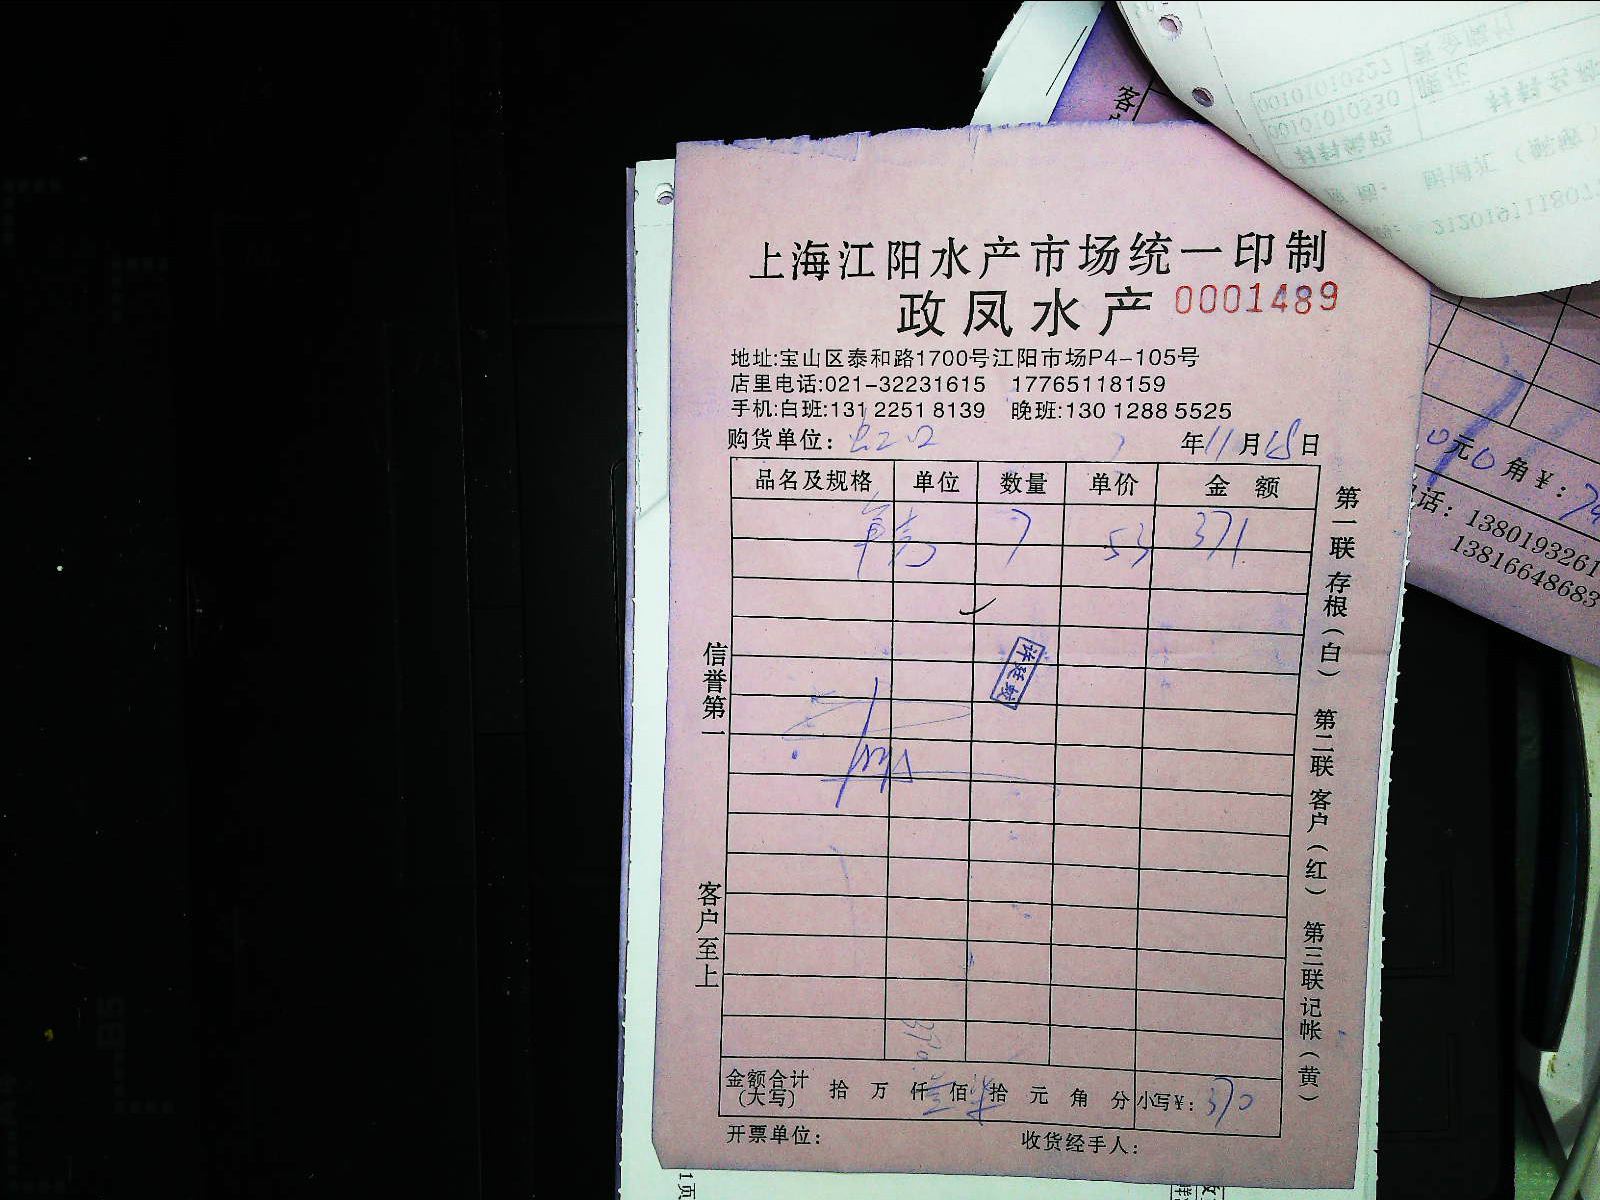 上海江阳水产市场统一印制
政凤水产 0001489
地址:宝山区泰和路1700号江阳市场P4-105号
店里电话:021-32231615 17765118159
手机:白班:131 2251 8139 晚班:130 1288 5525
购货单位: 年11月18日
品名及规格 单位 数量 单价 金额
7 53 371
信誉第一
客户至上
第一联 存根(白) 第二联 客户(红) 第三联 记帐(黄)
金额合计(大写) 拾 万 仟 佰 拾 元 角 分 小写¥: 370
开票单位: 收货经手人:
元0角¥:
话: 1380193261
13816648683
1页